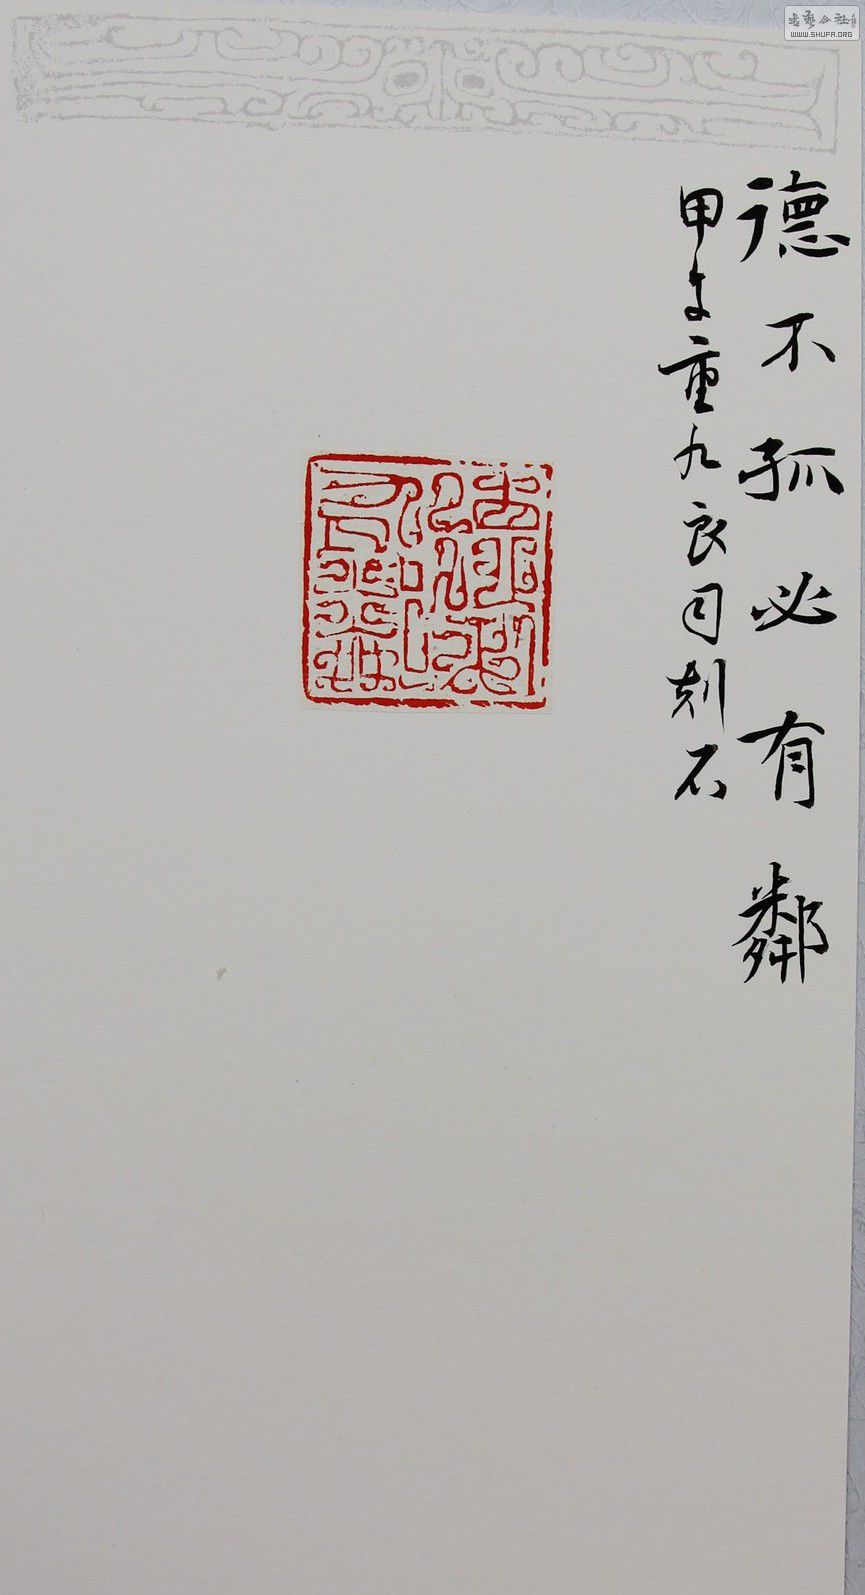 德不孤必有鄰
甲午重九良司刻石
書藝公社
WWW.SHUFA.ORG